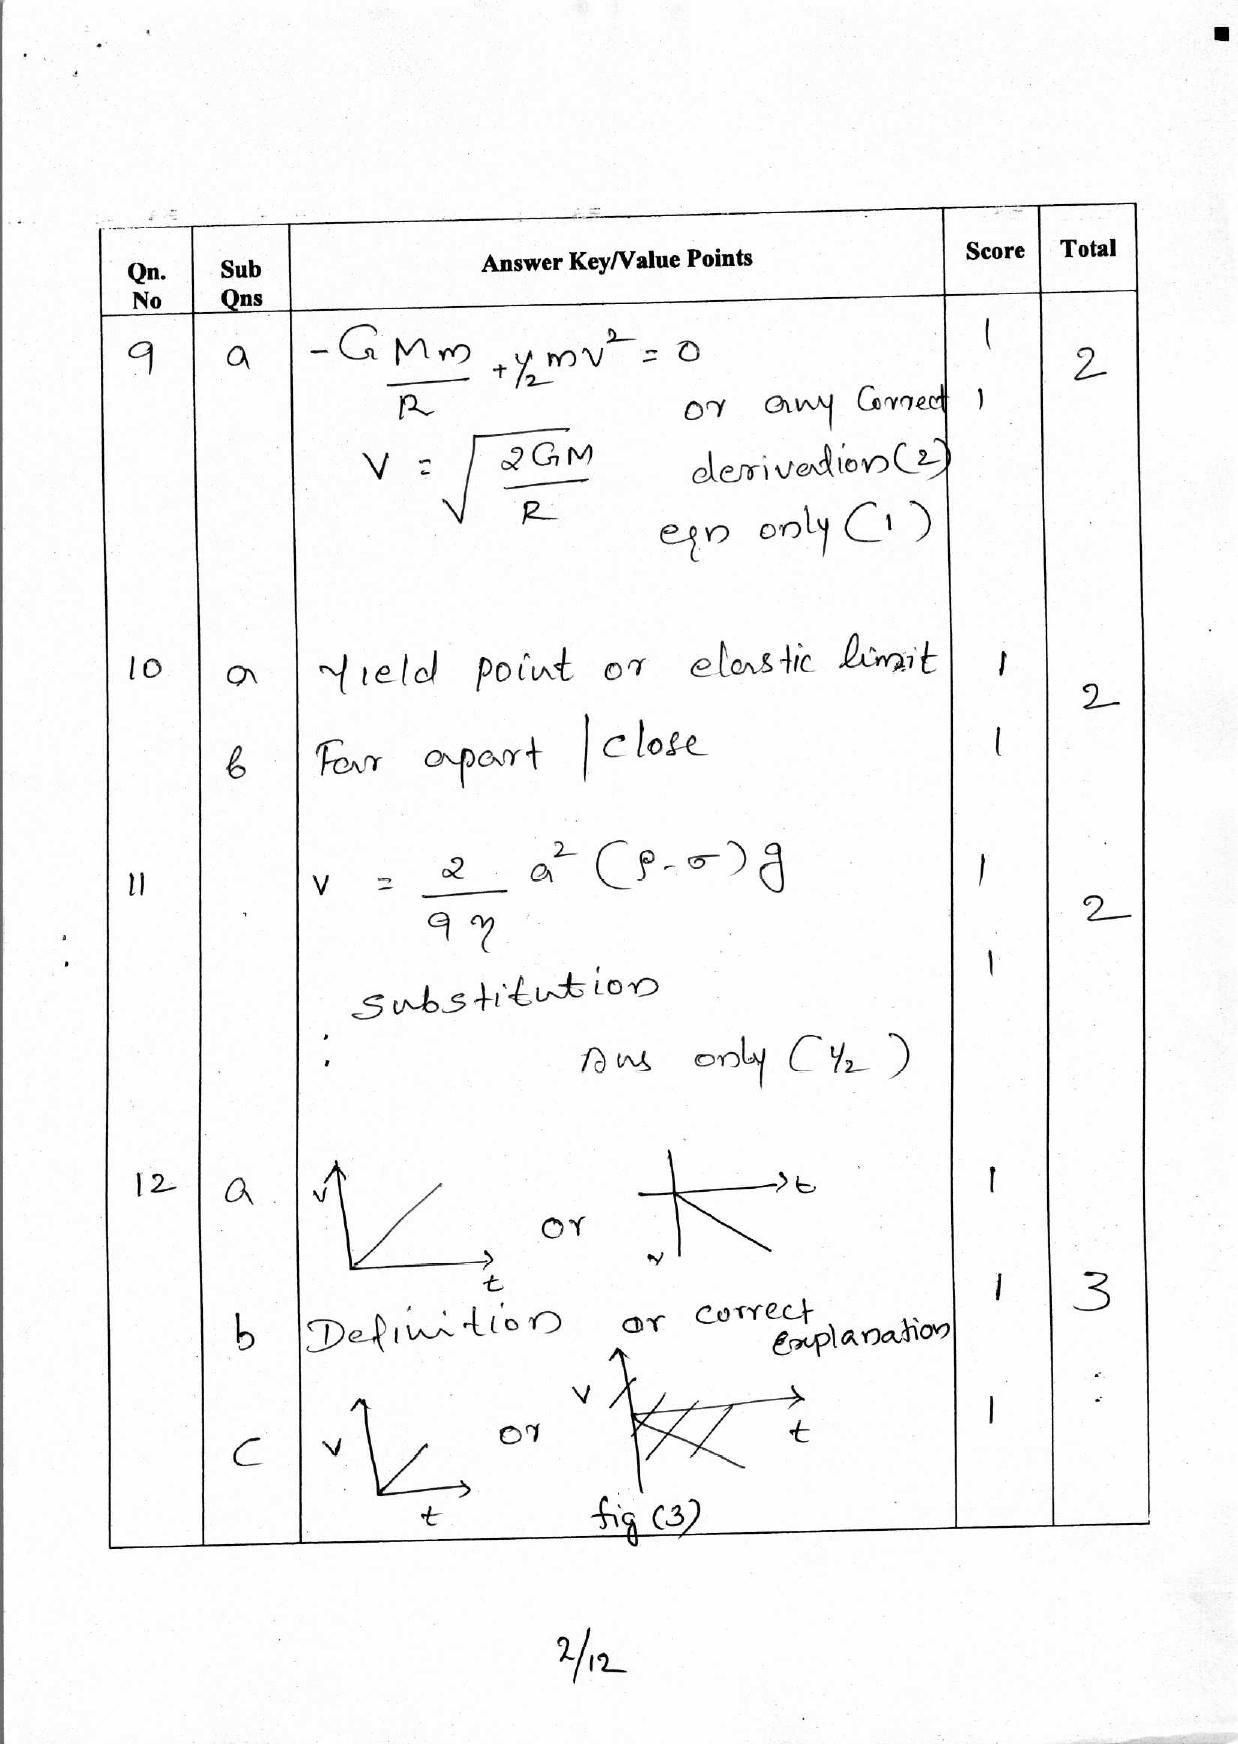 Qn. No Sub Qns Answer Key/Value Points Score Total
9 a -GMm/R + 1/2 mv² = 0 1 2
or any Correct 1
V = √(2GM/R) derivation (2)
eqn only (1)
10 a Yield point or elastic limit 1 2
b Far apart / close 1
11 v = 2/9η a² (ρ-σ)g 1 2
substitution 1
Ans only (1/2)
12 a v t or t v 1 3
b Definition or correct explanation 1
c v t or v t 1
fig (3)
2/12